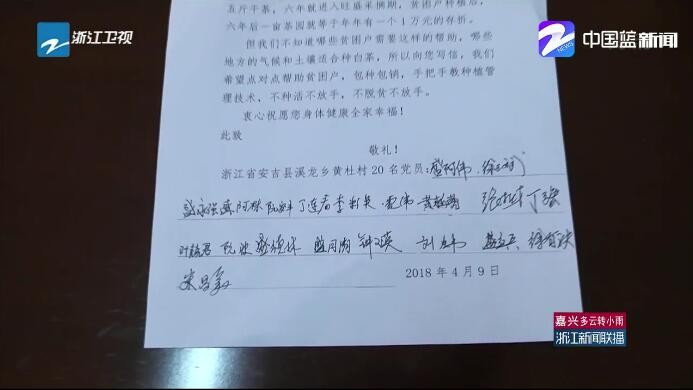 浙江卫视
NEWS
中国蓝新闻
五斤干茶，六年就进入旺盛采摘期，贫困户种植后，
六年后一亩茶园就等于年年有一个1万元的存折。
但我们不知道哪些贫困户需要这样的帮助，哪些
地方的气候和土壤适合种白茶，所以向您写信，我们
希望点对点帮助贫困户，包种包销，手把手教种植管
理技术，不种活不放手，不脱贫不放手。
衷心祝愿您身体健康全家幸福！
此致
敬礼！
浙江省安吉县溪龙乡黄杜村20名党员：盛阿伟
丁连春
钟玉英 刘
2018年4月9日
嘉兴 多云转小雨
浙江新闻联播